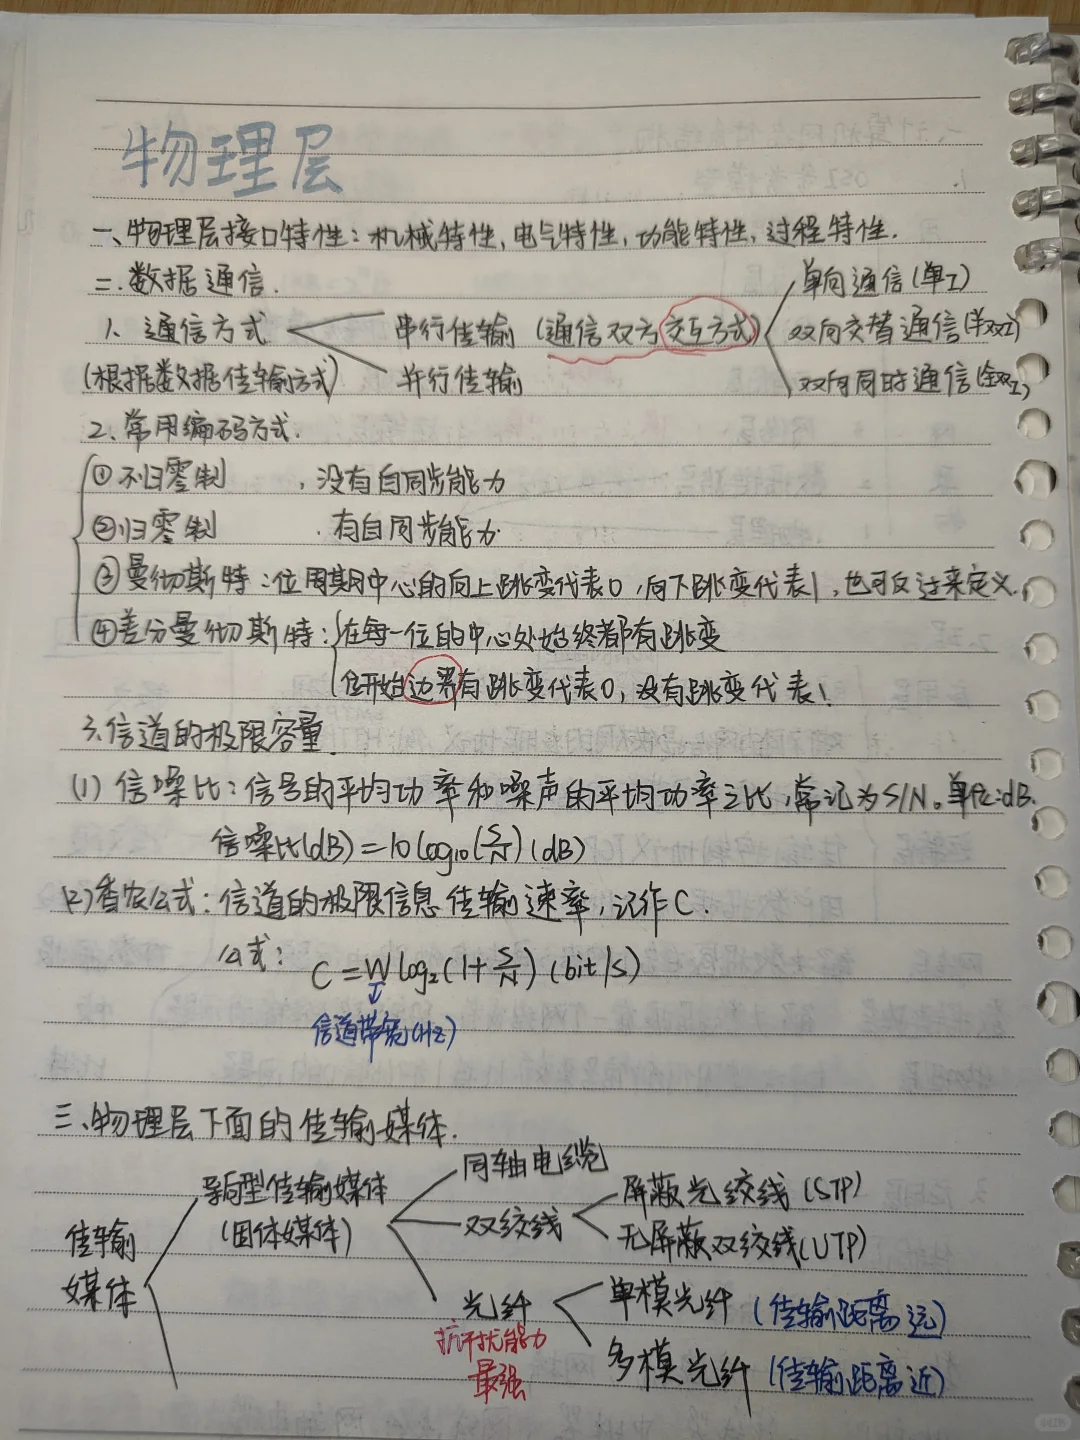 物理层
一、物理层接口特性：机械特性，电气特性，功能特性，过程特性．
二．数据通信．
1、通信方式
(根据数据传输方式)
串行传输
并行传输
(通信双方交互方式)
单向通信(单工)
双向交替通信(半双工)
双向同时通信(全双工)
2、常用编码方式．
①不归零制，没有自同步能力
②归零制．有自同步能力．
③曼彻斯特：位周期中心的向上跳变代表0，向下跳变代表1，也可反过来定义．
④差分曼彻斯特：在每一位的中心处始终都有跳变
位开始边界有跳变代表0，没有跳变代表1
3、信道的极限容量．
(1) 信噪比：信号的平均功率和噪声的平均功率之比，常记为S/N。单位：dB.
信噪比(dB)=10log₁₀(S/N)(dB)
(2)香农公式：信道的极限信息传输速率，记作C．
公式：
C=Wlog₂(1+S/N)(bit/s)
信道带宽(Hz)
三、物理层下面的传输媒体．
传输
媒体
导向型传输媒体
(固体媒体)
同轴电缆
双绞线
屏蔽光绞线(STP)
无屏蔽双绞线(UTP)
光纤
抗干扰能力
最强
单模光纤 (传输距离远)
多模光纤 (传输距离近)